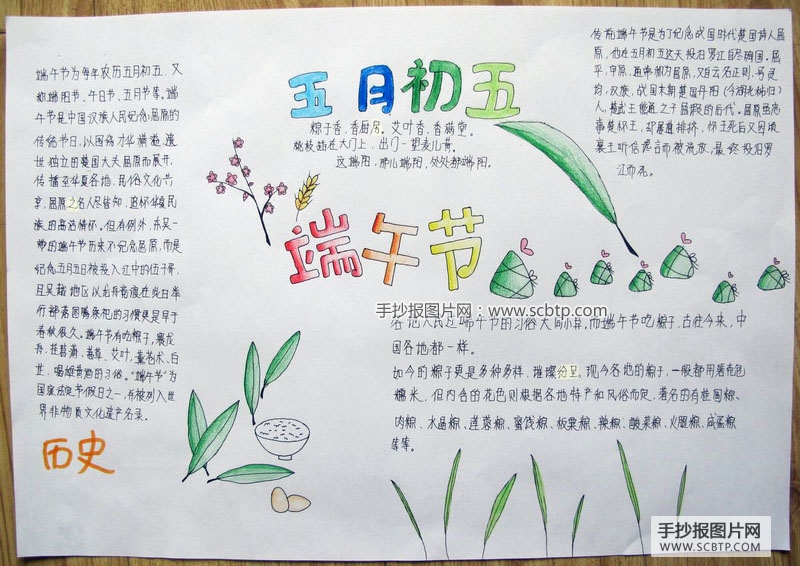 五月初五
粽子香,香厨房。艾叶香,香满堂。
桃枝插在大门上,出门一望麦儿黄。
这端阳,那儿端阳,处处都端阳。
端午节
端午节为每年农历五月初五,又
称端阳节、午日节、五月节等。端
午节是中国汉族人民纪念屈原的
传统节日,以围绕才华横溢、遗
世独立的楚国大夫屈原而展开,
传播至华夏各地,民俗文化共
享,屈原之名人尽皆知,追怀华夏民
族的高洁情怀。但有例外,东吴一
带的端午节历来不纪念屈原,而是
纪念五月五日被投入江中的伍子胥,
且吴越地区以龙舟竞渡在此日举
行部落图腾祭祀的习惯更是早于
春秋很久。端午节有吃粽子,赛龙
舟,挂菖蒲、蒿草、艾叶,薰苍术、白
芷,喝雄黄酒的习俗。“端午节”为
国家法定节假日之一,并被列入世
界非物质文化遗产名录。
历史
传说端午节是为了纪念战国时代楚国诗人屈
原,他在五月初五这天投汨罗江自尽殉国。屈
平,字原,通常称为屈原,又自云名正则,号灵
均,汉族,战国末期楚国丹阳(今湖北秭归)
人,楚武王熊通之子屈瑕的后代。屈原虽忠
事楚怀王,却屡遭排挤,怀王死后又因顷
襄王听信谗言而被流放,最终投汨罗
江而死。
手抄报图片网:www.scbtp.com
各地人民过端午节的习俗大同小异,而端午节吃粽子,古往今来,中
国各地都一样。
如今的粽子更是多种多样,璀璨纷呈。现今各地的粽子,一般都用箬壳包
糯米,但内含的花色则根据各地特产和风俗而定,著名的有桂圆粽、
肉粽、水晶粽、莲蓉粽、蜜饯粽、板栗粽、辣粽、酸菜粽、火腿粽、咸蛋粽
等等。
手抄报图片网
WWW.SCBTP.COM